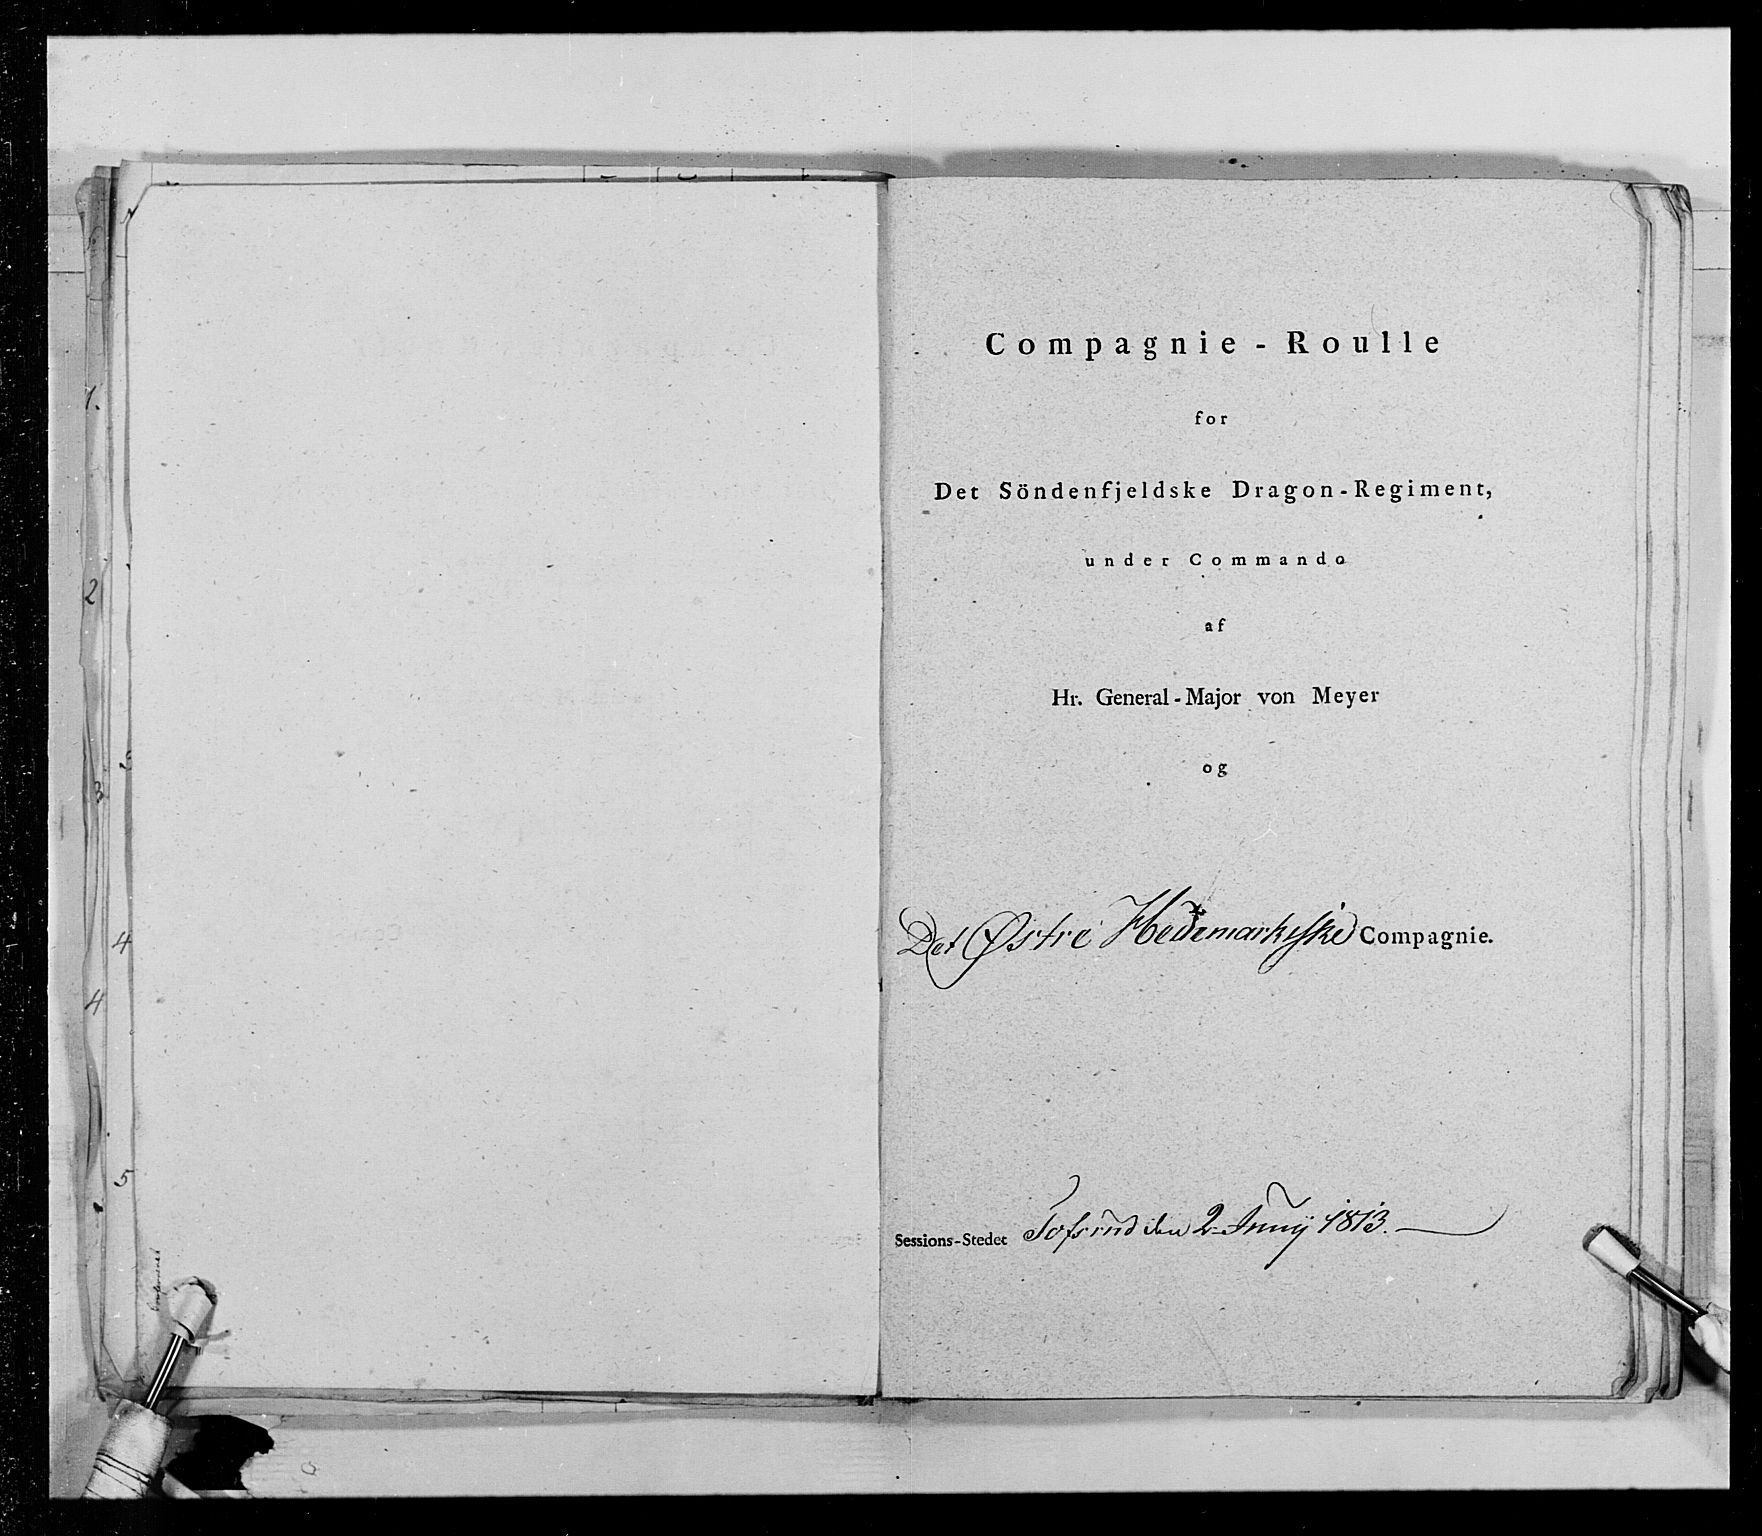 Compagnie - Roulle
for
Det Söndenfjeldske Dragon-Regiment,
under Commando
af
Hr. General-Major von Meyer
og
Det Østre Hedemarkeske Compagnie.
Sessions-Stedet Tofsrud den 2 Junij 1813.
1.
2
3
4
4
5